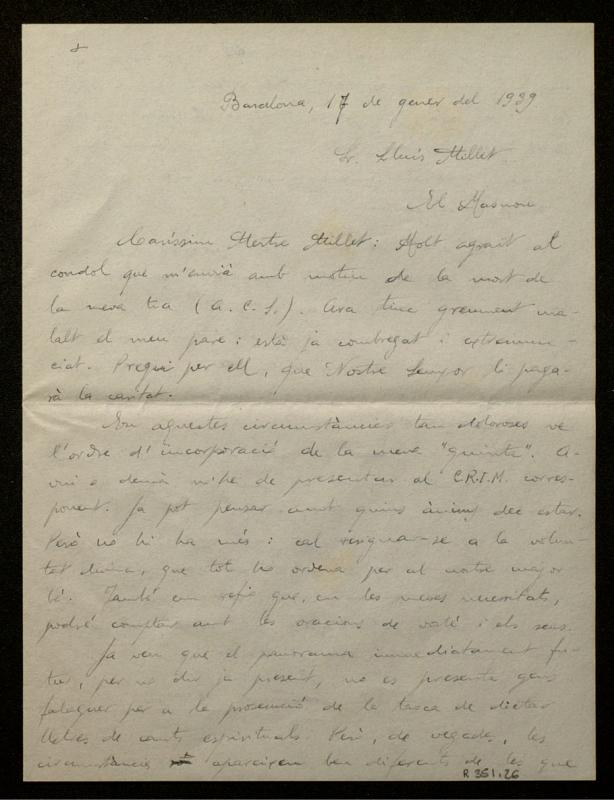 Barcelona, 17 de gener del 1939
Sr. Lluís Millet
El Masnou
Caríssim Mestre Millet: Molt agraït al
condol que m'envià amb motiu de la mort de
la meva tia (a. C. S.). Ara tinc greument ma-
lalt el meu pare: està ja combregat i extremun-
ciat. Pregui per ell, que Nostre Senyor li paga-
rà la caritat.
En aquestes circumstàncies tan doloroses ve
l'ordre d'incorporació de la meva "quinta". A-
vui o demà m'he de presentar al C.R.I.M. corres-
ponent. Ja pot pensar amb quins ànims dec estar.
Però no hi ha més: cal resignar-se a la volun-
tat divina, que tot ho ordena per al nostre major
bé. També em refio que, en les meves necessitats,
podré comptar amb les oracions de vostè i els seus.
Ja veu que el panorama immediatament fu-
tur, per no dir ja present, no es presenta gens
falaguer per a la prosecució de la tasca de dictar
lletres de cants espirituals. Però, de vegades, les
circumstàncies apareixen ben diferents de les que
R 351.26